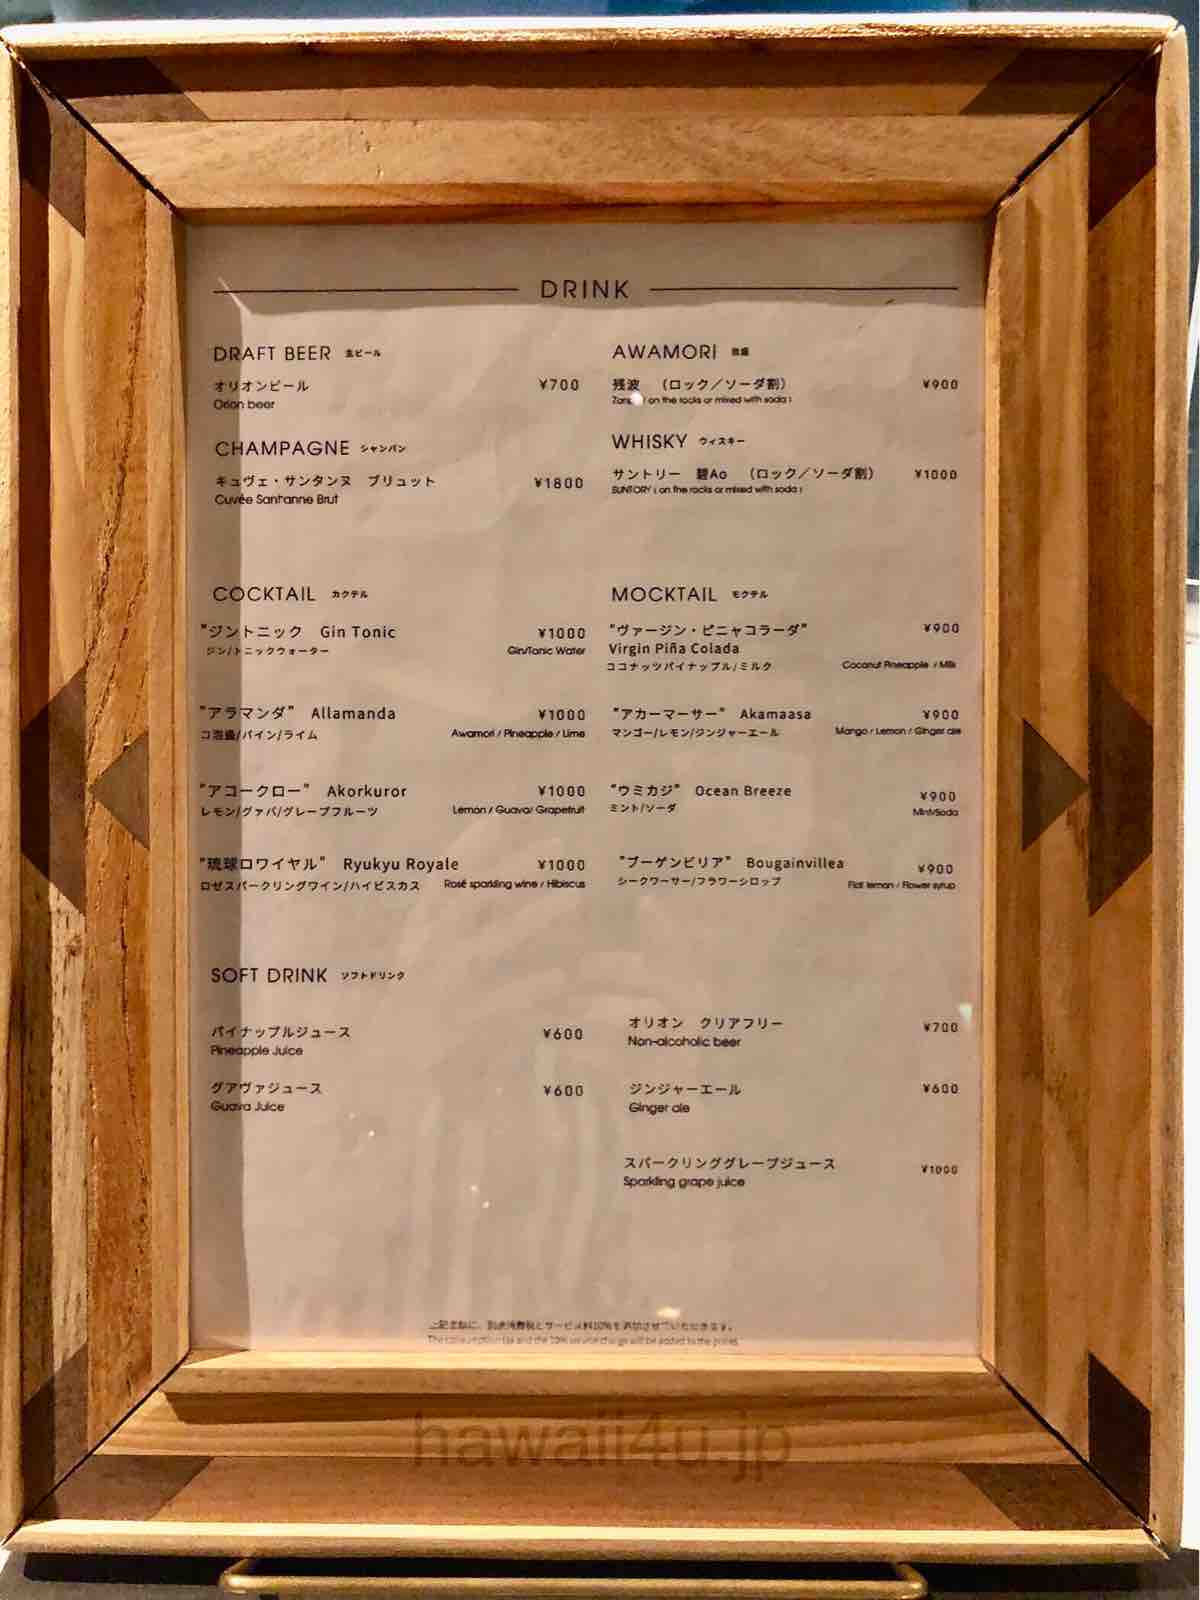 DRINK
DRAFT BEER 生ビール
オリオンビール ¥700
Orion beer
CHAMPAGNE シャンパン
キュヴェ・サンタンヌ ブリュット ¥1800
Cuvée Sant'anne Brut
AWAMORI 泡盛
残波 (ロック/ソーダ割) ¥900
on the rocks or mixed with soda
WHISKY ウィスキー
サントリー 碧Ao (ロック/ソーダ割) ¥1000
SUNTORY ( on the rocks or mixed with soda )
COCKTAIL カクテル
"ジントニック Gin Tonic ¥1000
ジン/トニックウォーター Gin/Tonic Water
"アラマンダ" Allamanda ¥1000
コ泡盛/パイン/ライム Awamori / Pineapple / Lime
"アコークロー" Akorkuror ¥1000
レモン/グァバ/グレープフルーツ Lemon / Guava/ Grapefruit
"琉球ロワイヤル" Ryukyu Royale ¥1000
ロゼスパークリングワイン/ハイビスカス Rosé sparkling wine / Hibiscus
MOCKTAIL モクテル
"ヴァージン・ピニャコラーダ" ¥900
Virgin Piña Colada
ココナッツパイナップル/ミルク Coconut Pineapple / Milk
"アカーマーサー" Akamaasa ¥900
マンゴー/レモン/ジンジャーエール Mango / Lemon / Ginger ale
"ウミカジ" Ocean Breeze ¥900
ミント/ソーダ Mint/Soda
"ブーゲンビリア" Bougainvillea ¥900
シークワーサー/フラワーシロップ Flat lemon / Flower syrup
SOFT DRINK ソフトドリンク
パイナップルジュース ¥600
Pineapple Juice
グアヴァジュース ¥600
Guava Juice
オリオン クリアフリー ¥700
Non-alcoholic beer
ジンジャーエール ¥600
Ginger ale
スパークリンググレープジュース ¥1000
Sparkling grape juice
上記金額に、別途消費税とサービス料10%を追加させていただきます。
The consumption tax and the 10% service charge will be added to the prices.
hawaii4u.jp